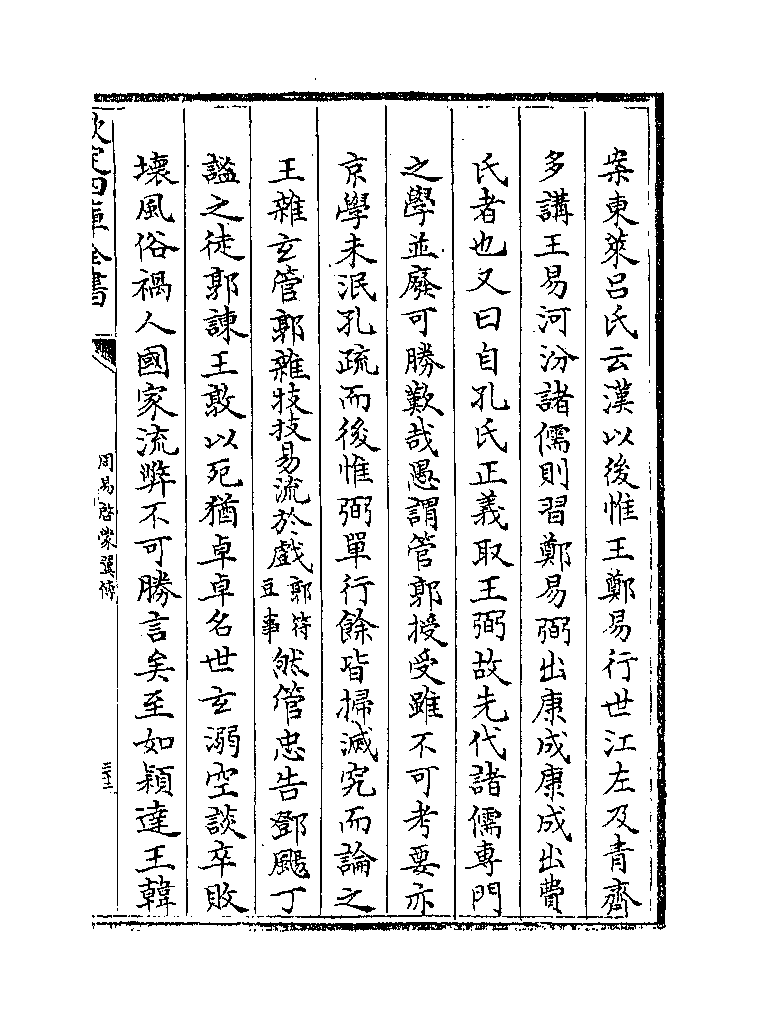 案東萊吕氏云漢以後惟王鄭易行世江左及青齊
多講王易河汾諸儒則習鄭易弼出康成康成出費
氏者也又曰自孔氏正義取王弼故先代諸儒專門
之學並廢可勝歎哉愚謂管郭授受雖不可考要亦
京學未泯孔疏而後惟弼單行餘皆掃滅究而論之
王雜玄管郭雜技技易流於戲郭符豆事然管忠告鄧颺丁
謐之徒郭諫王敦以死猶卓卓名世玄溺空談卒敗
壞風俗禍人國家流弊不可勝言矣至如穎達王韓
欽定四庫全書
周易啓蒙翼傳